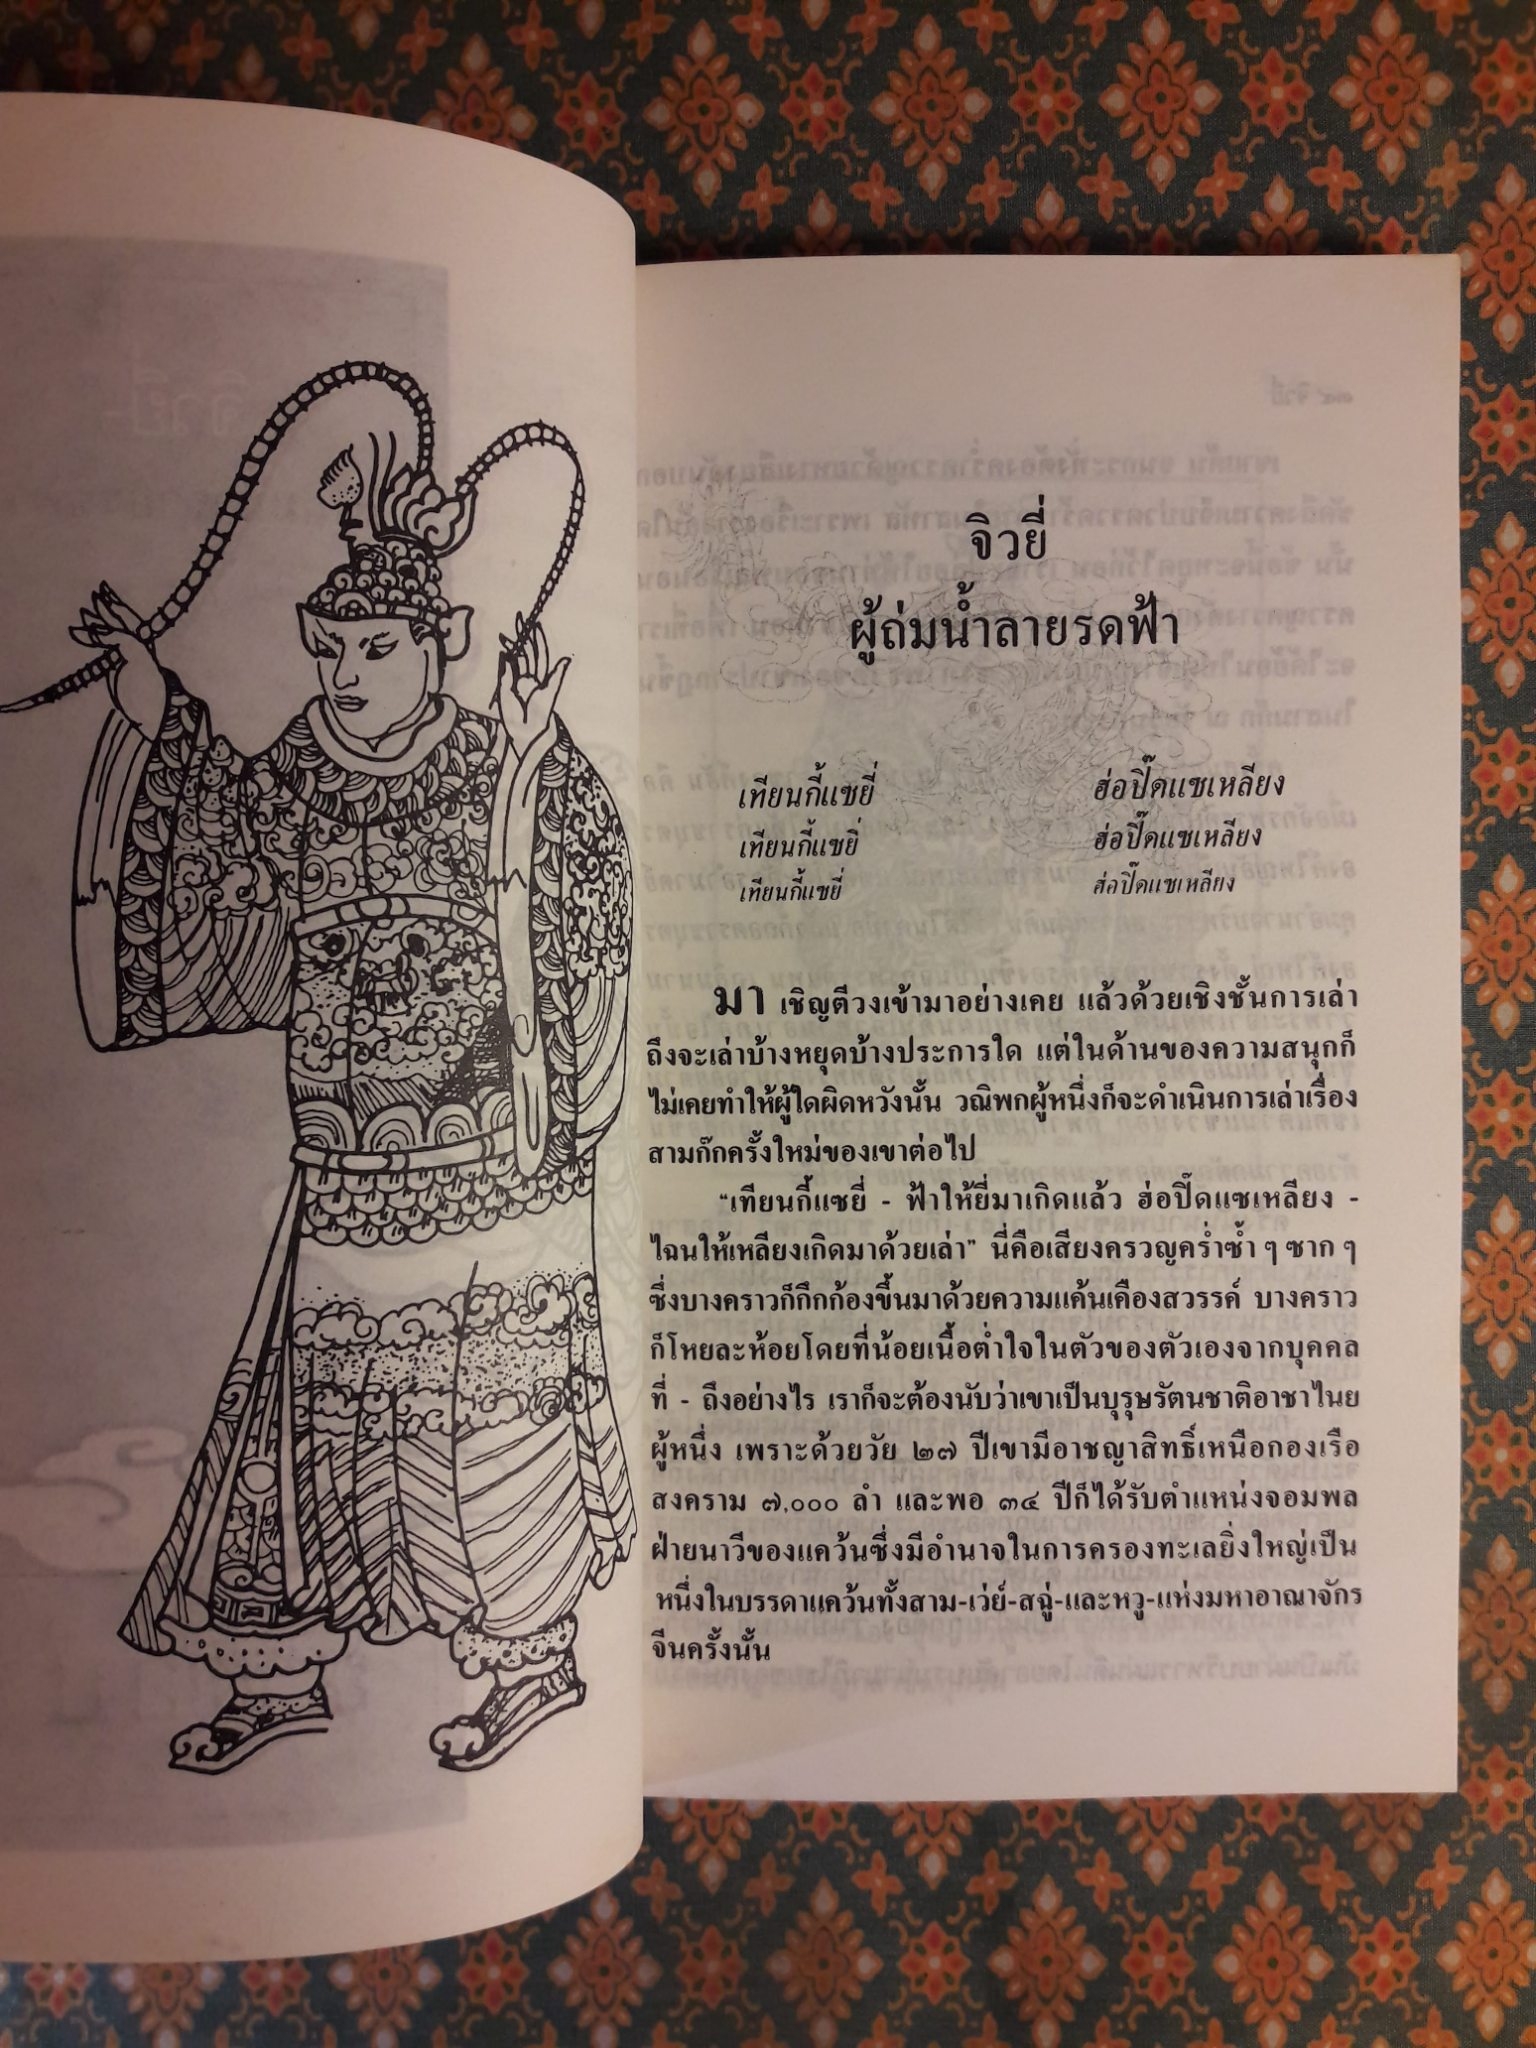 จิวยี่
ผู้ถ่มน้ำลายรดฟ้า
เทียนกี้แซยี่ ฮ่อปี๊ดแซเหลียง
เทียนกี้แซยี่ ฮ่อปี๊ดแซเหลียง
เทียนกี้แซยี่ ฮ่อปี๊ดแซเหลียง
มา เชิญตีวงเข้ามาอย่างเคย แล้วด้วยเชิงชั้นการเล่า
ถึงจะเล่าบ้างหยุดบ้างประการใด แต่ในด้านของความสนุกก็
ไม่เคยทำให้ผู้ใดผิดหวังนั้น วณิพกผู้หนึ่งก็จะดำเนินการเล่าเรื่อง
สามก๊กครั้งใหม่ของเขาต่อไป
“เทียนกี้แซยี่ - ฟ้าให้ยี่มาเกิดแล้ว ฮ่อปี๊ดแซเหลียง -
ไฉนให้เหลียงเกิดมาด้วยเล่า” นี่คือเสียงครวญคร่ำซ้ำ ๆ ซาก ๆ
ซึ่งบางคราวก็กึกก้องขึ้นมาด้วยความแค้นเคืองสวรรค์ บางคราว
ก็โหยละห้อยโดยที่น้อยเนื้อต่ำใจในตัวของตัวเองจากบุคคล
ที่ - ถึงอย่างไร เราก็จะต้องนับว่าเขาเป็นบุรุษรัตนชาติอาชาไนย
ผู้หนึ่ง เพราะด้วยวัย ๒๗ ปีเขามีอาชญาสิทธิ์เหนือกองเรือ
สงคราม ๗,๐๐๐ ลำ และพอ ๓๔ ปีก็ได้รับตำแหน่งจอมพล
ฝ่ายนาวีของแคว้นซึ่งมีอำนาจในการครองทะเลยิ่งใหญ่เป็น
หนึ่งในบรรดาแคว้นทั้งสาม-เว่ย์-สฉู่-และหวู-แห่งมหาอาณาจักร
จีนครั้งนั้น